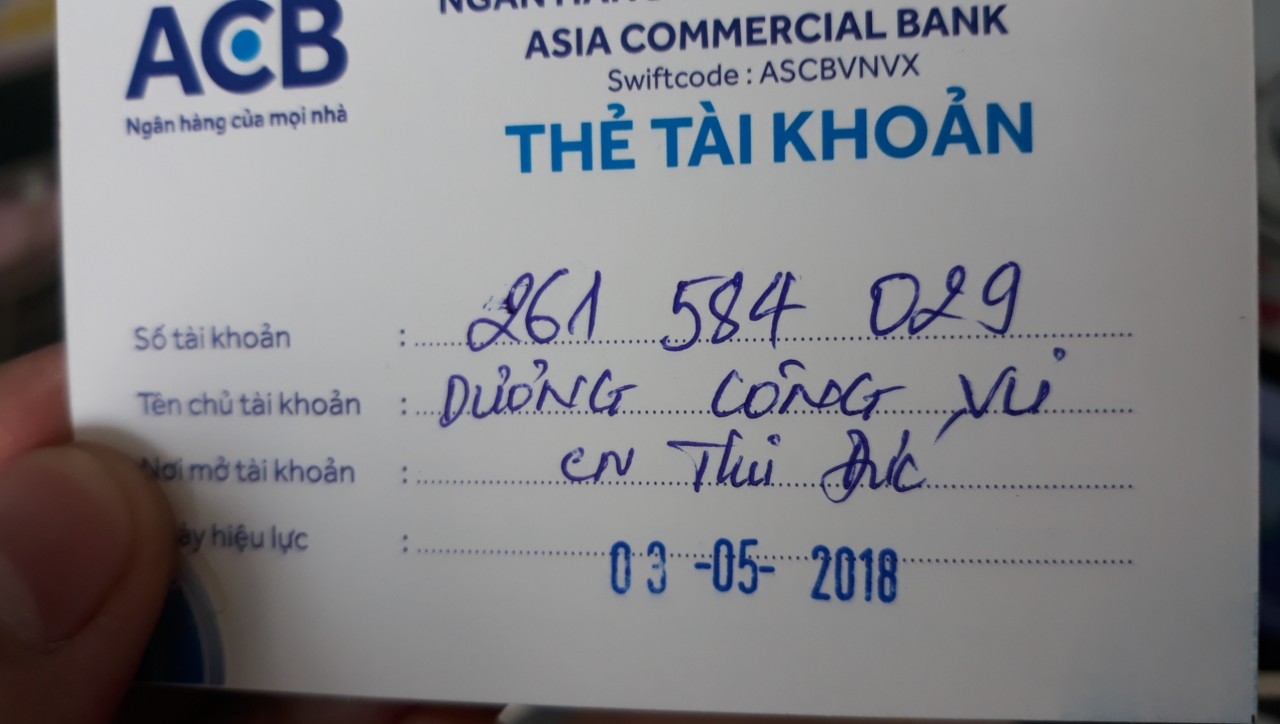 ACB
Ngân hàng của mọi nhà
ASIA COMMERCIAL BANK
Swiftcode : ASCBVNVX
THẺ TÀI KHOẢN
Số tài khoản : 261 584 029
Tên chủ tài khoản : DƯƠNG CÔNG VỦ
Nơi mở tài khoản : CN Thủ Đức
ày hiệu lực : 03 -05- 2018